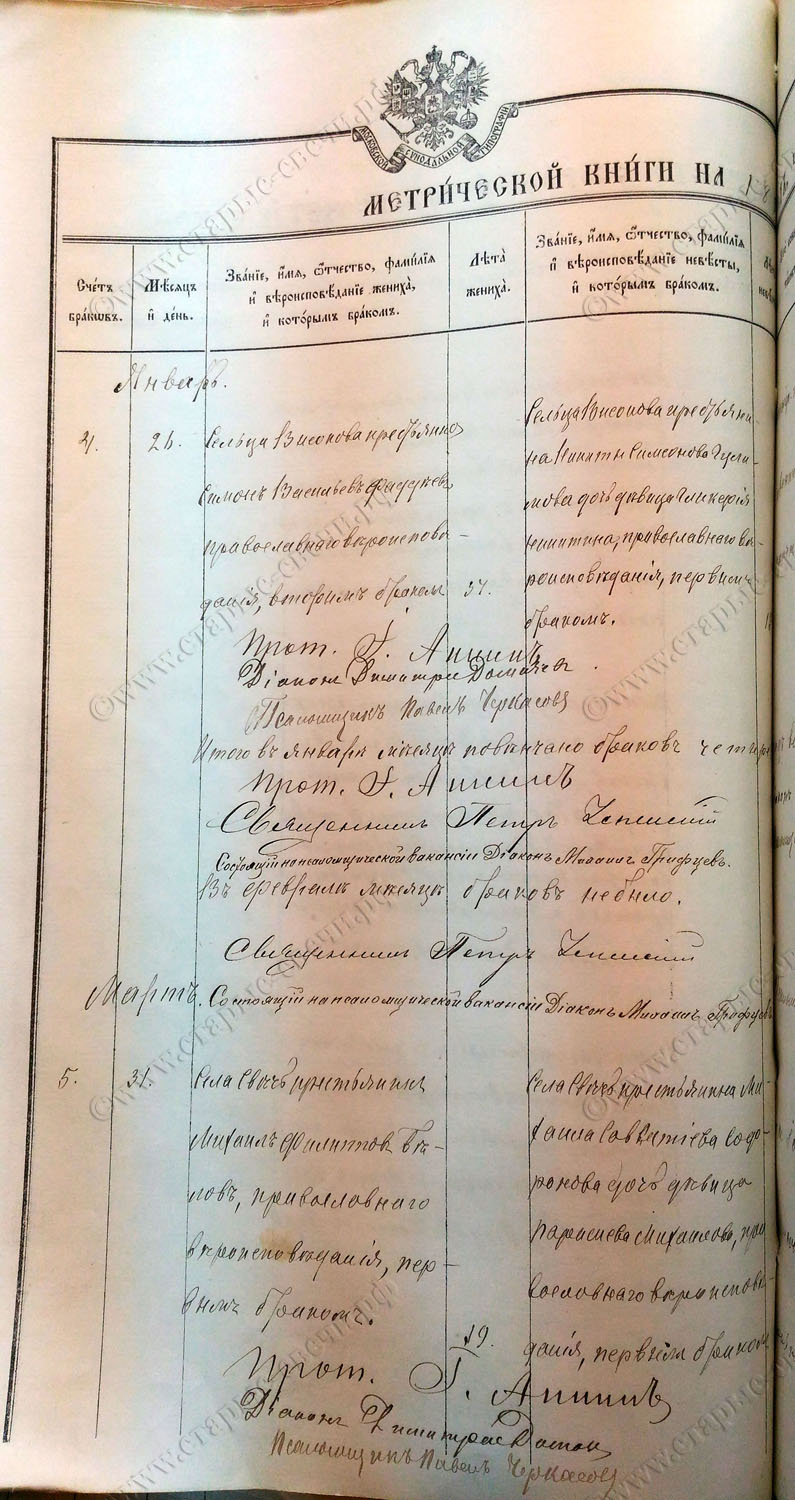 МОСКОВСКОЙ СѴНОДАЛЬНОЙ ТИПОГРАФІИ
МЕТРИ́ЧЕСКОЙ КНИ́ГИ НА 18
Сче́тъ бра́кωвъ.
Мѣ́сѧцъ и҆ де́нь.
Зва́нїе, и҆́мѧ, ѻ҆́тчество, фами́лїѧ и҆ вѣроисповѣ́данїе жениха̀, и҆ кото́рымъ бра́комъ.
Лѣ́та жениха̀.
Зва́нїе, и҆́мѧ, ѻ҆́тчество, фами́лїѧ и҆ вѣроисповѣ́данїе невѣ́сты, и҆ кото́рымъ бра́комъ.
Январь.
4.
26.
Сельца Висопова крестьянинъ
Симонъ Васильевъ Фаддеевъ
православнаго вѣроиспове-
данія, вторымъ бракомъ
37.
Сельца Висопова крестьяни-
на Никиты Симеонова
дочь дѣвица Гликерія
Никитина, православнаго вѣ-
роисповѣданія, первымъ
бракомъ.
Прот. Г.
Діаконъ Димитрій
Псаломщикъ Павелъ Черкасовъ
Итого въ январѣ мѣсяцѣ повѣнчано браковъ четыре
Прот. Г.
Священникъ Петръ Успенскій
Состоящій на псаломщической вакансіи Діаконъ Михаилъ Грифцевъ.
Въ февралѣ мѣсяцѣ браковъ небыло.
Священникъ Петръ Успенскій
Мартъ.
Состоящій на псаломщической вакансіи Діаконъ Михаилъ Грифцевъ
5.
31.
Села крестьянинъ
Михаилъ Филиппов Бѣ-
ловъ, православнаго
вѣроисповѣданія, пер-
вымъ бракомъ.
19.
Села крестьянина Ми-
хаила Савватіева Софо-
ронова дочь дѣвица
Параскева Михайлова, пра
вославнаго вѣроисповѣ
данія, первымъ бракомъ
Прот. Г.
Діаконъ Димитрій
Псаломщикъ Павелъ Черкасовъ
©www.старые-свечи.рф